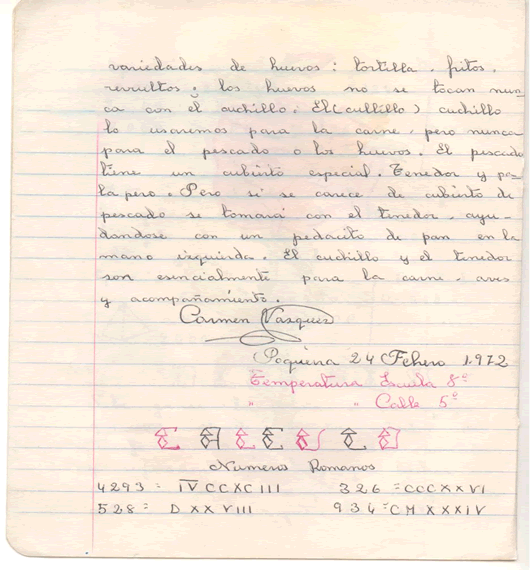 variedades de huevos: tortilla, fritos,
revueltos; los huevos no se tocan nun-
ca con el cuchillo. El (cullillo) cuchillo
lo usaremos para la carne, pero nunca
para el pescado o los huevos. El pescado
tiene un cubierto especial. Tenedor y pa-
la pero. Pero si se carece de cubierto de
pescado se tomará con el tenedor, ayu-
dandose con un pedacito de pan en la
mano izquierda. El cuchillo y el tenedor
son esencialmente para la carne, aves
y acompañamiento.
Carmen Vasquez
24 Febrero 1.972
Temperatura Escuela 8º
" " Calle 5º
Numeros Romanos
4293 = IV CCXCIII 326 = CCCXXVI
528 = DXXVIII 934 = CMXXXIV